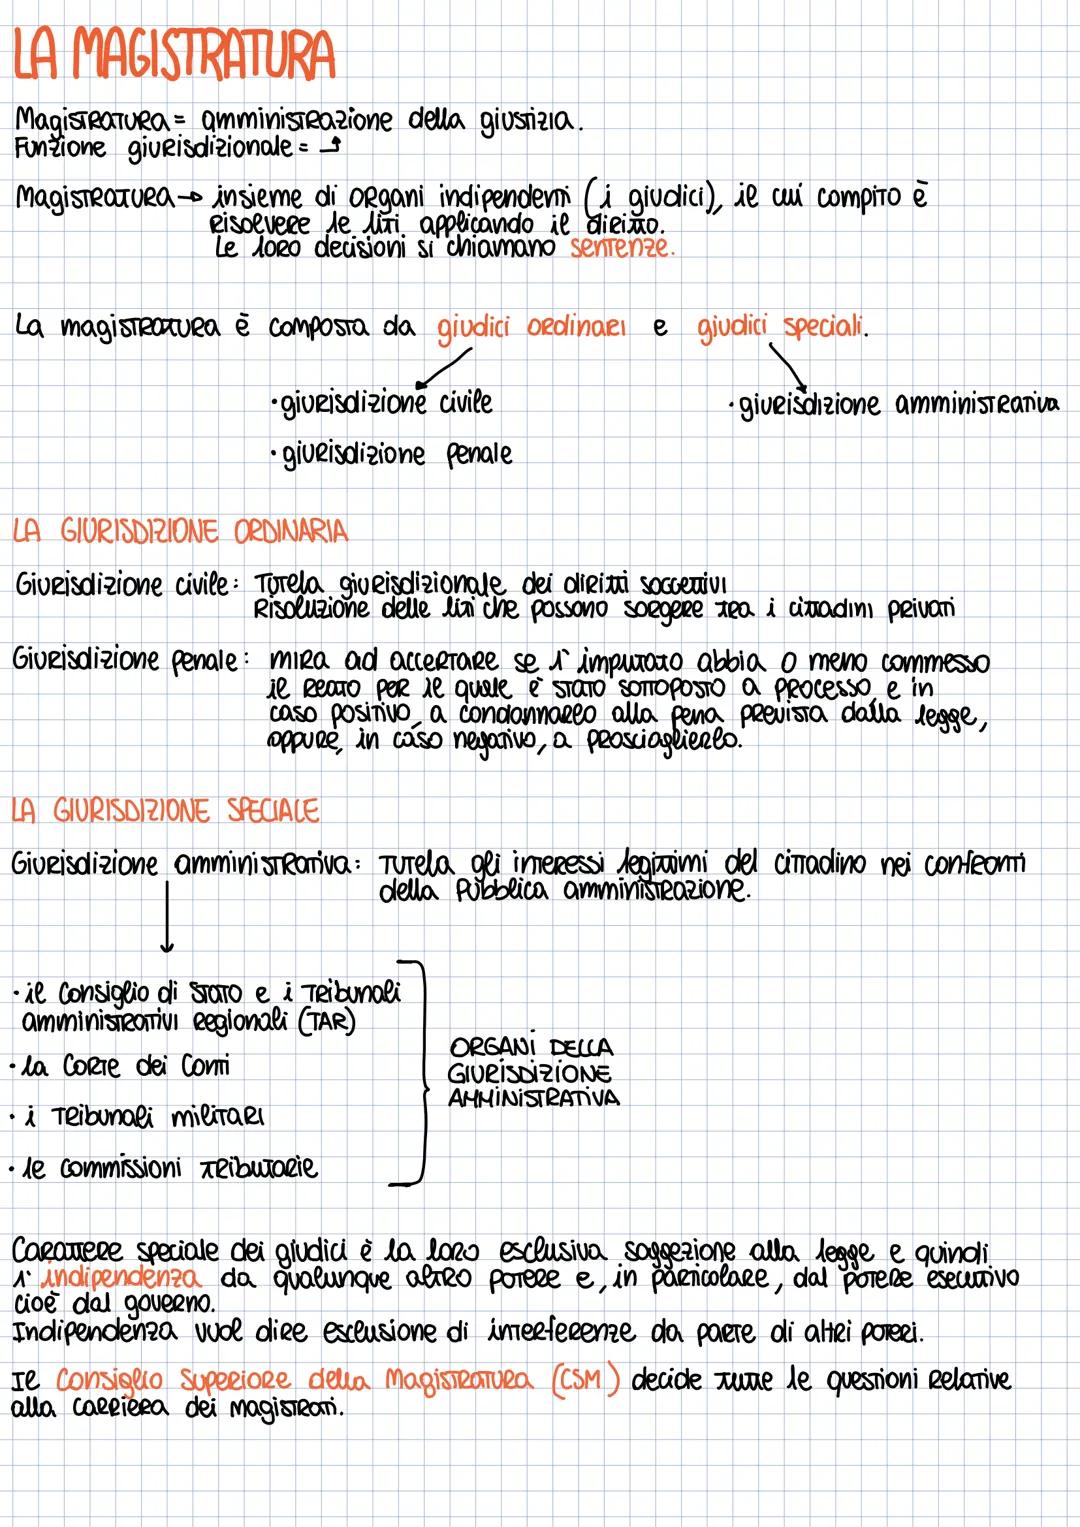 LA MAGISTRATURA
Magistratura = amministrazione della giustizia.
Funzione giurisdizionale = ⤴
Magistratura → insieme di organi indipendenti (i giudici), il cui compito è
risolvere le liti applicando il diritto.
Le loro decisioni si chiamano sentenze.
La magistratura è composta da giudici ordinari e giudici speciali.
· giurisdizione civile
· giurisdizione amministrativa
· giurisdizione penale
LA GIURISDIZIONE ORDINARIA
Giurisdizione civile: Tutela giurisdizionale dei diritti soggettivi
Risoluzione delle liti che possono sorgere tra i cittadini privati
Giurisdizione penale: mira ad accertare se l'imputato abbia o meno commesso
il reato per il quale è stato sottoposto a processo e in
caso positivo, a condannarlo alla pena prevista dalla legge,
oppure, in caso negativo, a prosciaglierlo.
LA GIURISDIZIONE SPECIALE
Giurisdizione amministrativa: Tutela gli interessi legittimi del cittadino nei confronti
della Pubblica amministrazione.
· il Consiglio di Stato e i Tribunali
amministrativi regionali (TAR)
· la Corte dei Conti
· i Tribunali militari
· le commissioni tributarie
ORGANI DELLA
GIURISDIZIONE
AMMINISTRATIVA
Carattere speciale dei giudici è la loro esclusiva soggezione alla legge e quindi
l'indipendenza da qualunque altro potere e, in particolare, dal potere esecutivo
cioè dal governo.
Indipendenza vuol dire esclusione di interferenze da parte di altri poteri.
Il Consiglio Superiore della Magistratura (CSM) decide tutte le questioni relative
alla carriera dei magistrati.